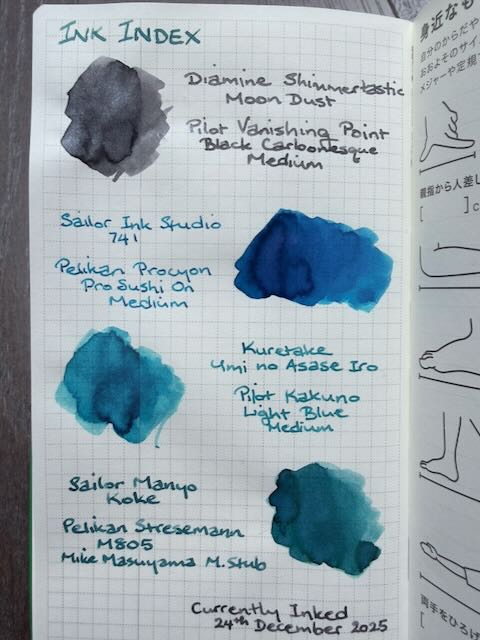 INK INDEX
Diamine Shimmertastic
Moon Dust
Pilot Vanishing Point
Black Carbonesque
Medium
Sailor Ink Studio
741
Pelikan Procyon
Pro Sushi On
Medium
Kuretake
Umi no Asase Iro
Pilot Kakuno
Light Blue
Medium
Sailor Manyo
Koke
Pelikan Stresemann
M805
Mike Masuyama M.Stub
Currently Inked
24th December 2025
身近なも
自分のからだや
おおよそのサイ
メジャーや定規
親指から人差し
[ ]c
両手をひろげ
[